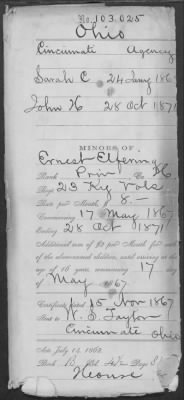 No. 103.025
Ohio
Cincinnati Agency
Sarah C. 24 Jany 186
John H 28 Oct 1871
MINORS OF
Ernest Elfering
Rank Priv Co. H
Regt 23 Ky Vols
Rate per Month, $ 8.—
Commencing 17 May 1867
Ending 28 Oct 1871
Additional sum of $2 per Month for each of
the above-named children, until arriving at the
age of 16 years, commencing 17 day
of May 1867
Certificate dated 15 Nov 1867
Sent to W. S. Taylor
Cincinnati Ohio
Act July 14, 1862
Book B Vol. Page 8
House